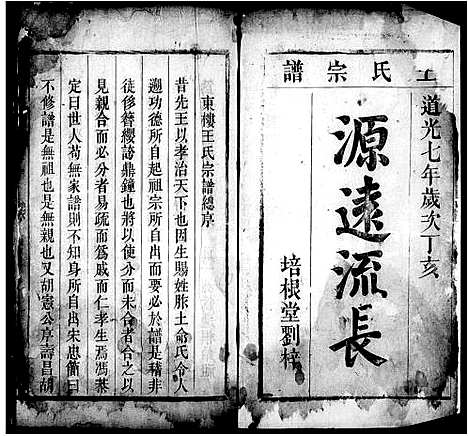 王氏宗譜
道光七年歲次丁亥
源遠流長
培根堂劉梓
東樓王氏宗譜總序
昔先王以孝治天下也因生賜姓胙土命氏令人
遡功德所自起祖宗所自出而要必於譜是稽非
徒侈簪纓誇鼎鐘也將以使分而未合者合之以
見親合而必分者易疏而爲戚而仁孝生焉馮蔡
定曰世人苟無家譜則不知所自出朱思衡曰
不修譜是無祖也是無親也又胡憲公序壽昌胡